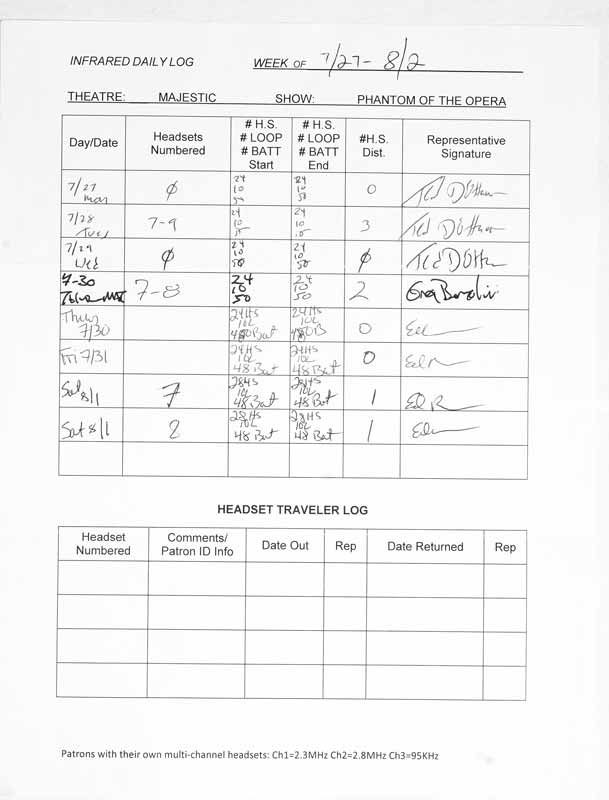 INFRARED DAILY LOG WEEK OF 7/27 - 8/2
THEATRE: MAJESTIC SHOW: PHANTOM OF THE OPERA
Day/Date Headsets Numbered # H.S. # LOOP # BATT Start # H.S. # LOOP # BATT End #H.S. Dist. Representative Signature
7/27 Mon ∅ 24 10 50 24 10 50 0
7/28 Tues 7-9 24 10 24 10 3
7/29 Wed ∅ 24 10 50 24 10 50 ∅
7-30 7-8 24 10 50 24 10 50 2
Thurs 7/30 24HS 10L 24HS 10L 0
Fri 7/31 24HS 10L 48 Bat 24HS 10L 48 Bat 0
Sat 8/1 7 10L 48 Bat 10L 48 Bat 1
Sat 8/1 2 28HS 10L 48 Bat 28HS 10L 48 Bat 1
HEADSET TRAVELER LOG
Headset Numbered Comments/ Patron ID Info Date Out Rep Date Returned Rep
Patrons with their own multi-channel headsets: Ch1=2.3MHz Ch2=2.8MHz Ch3=95KHz